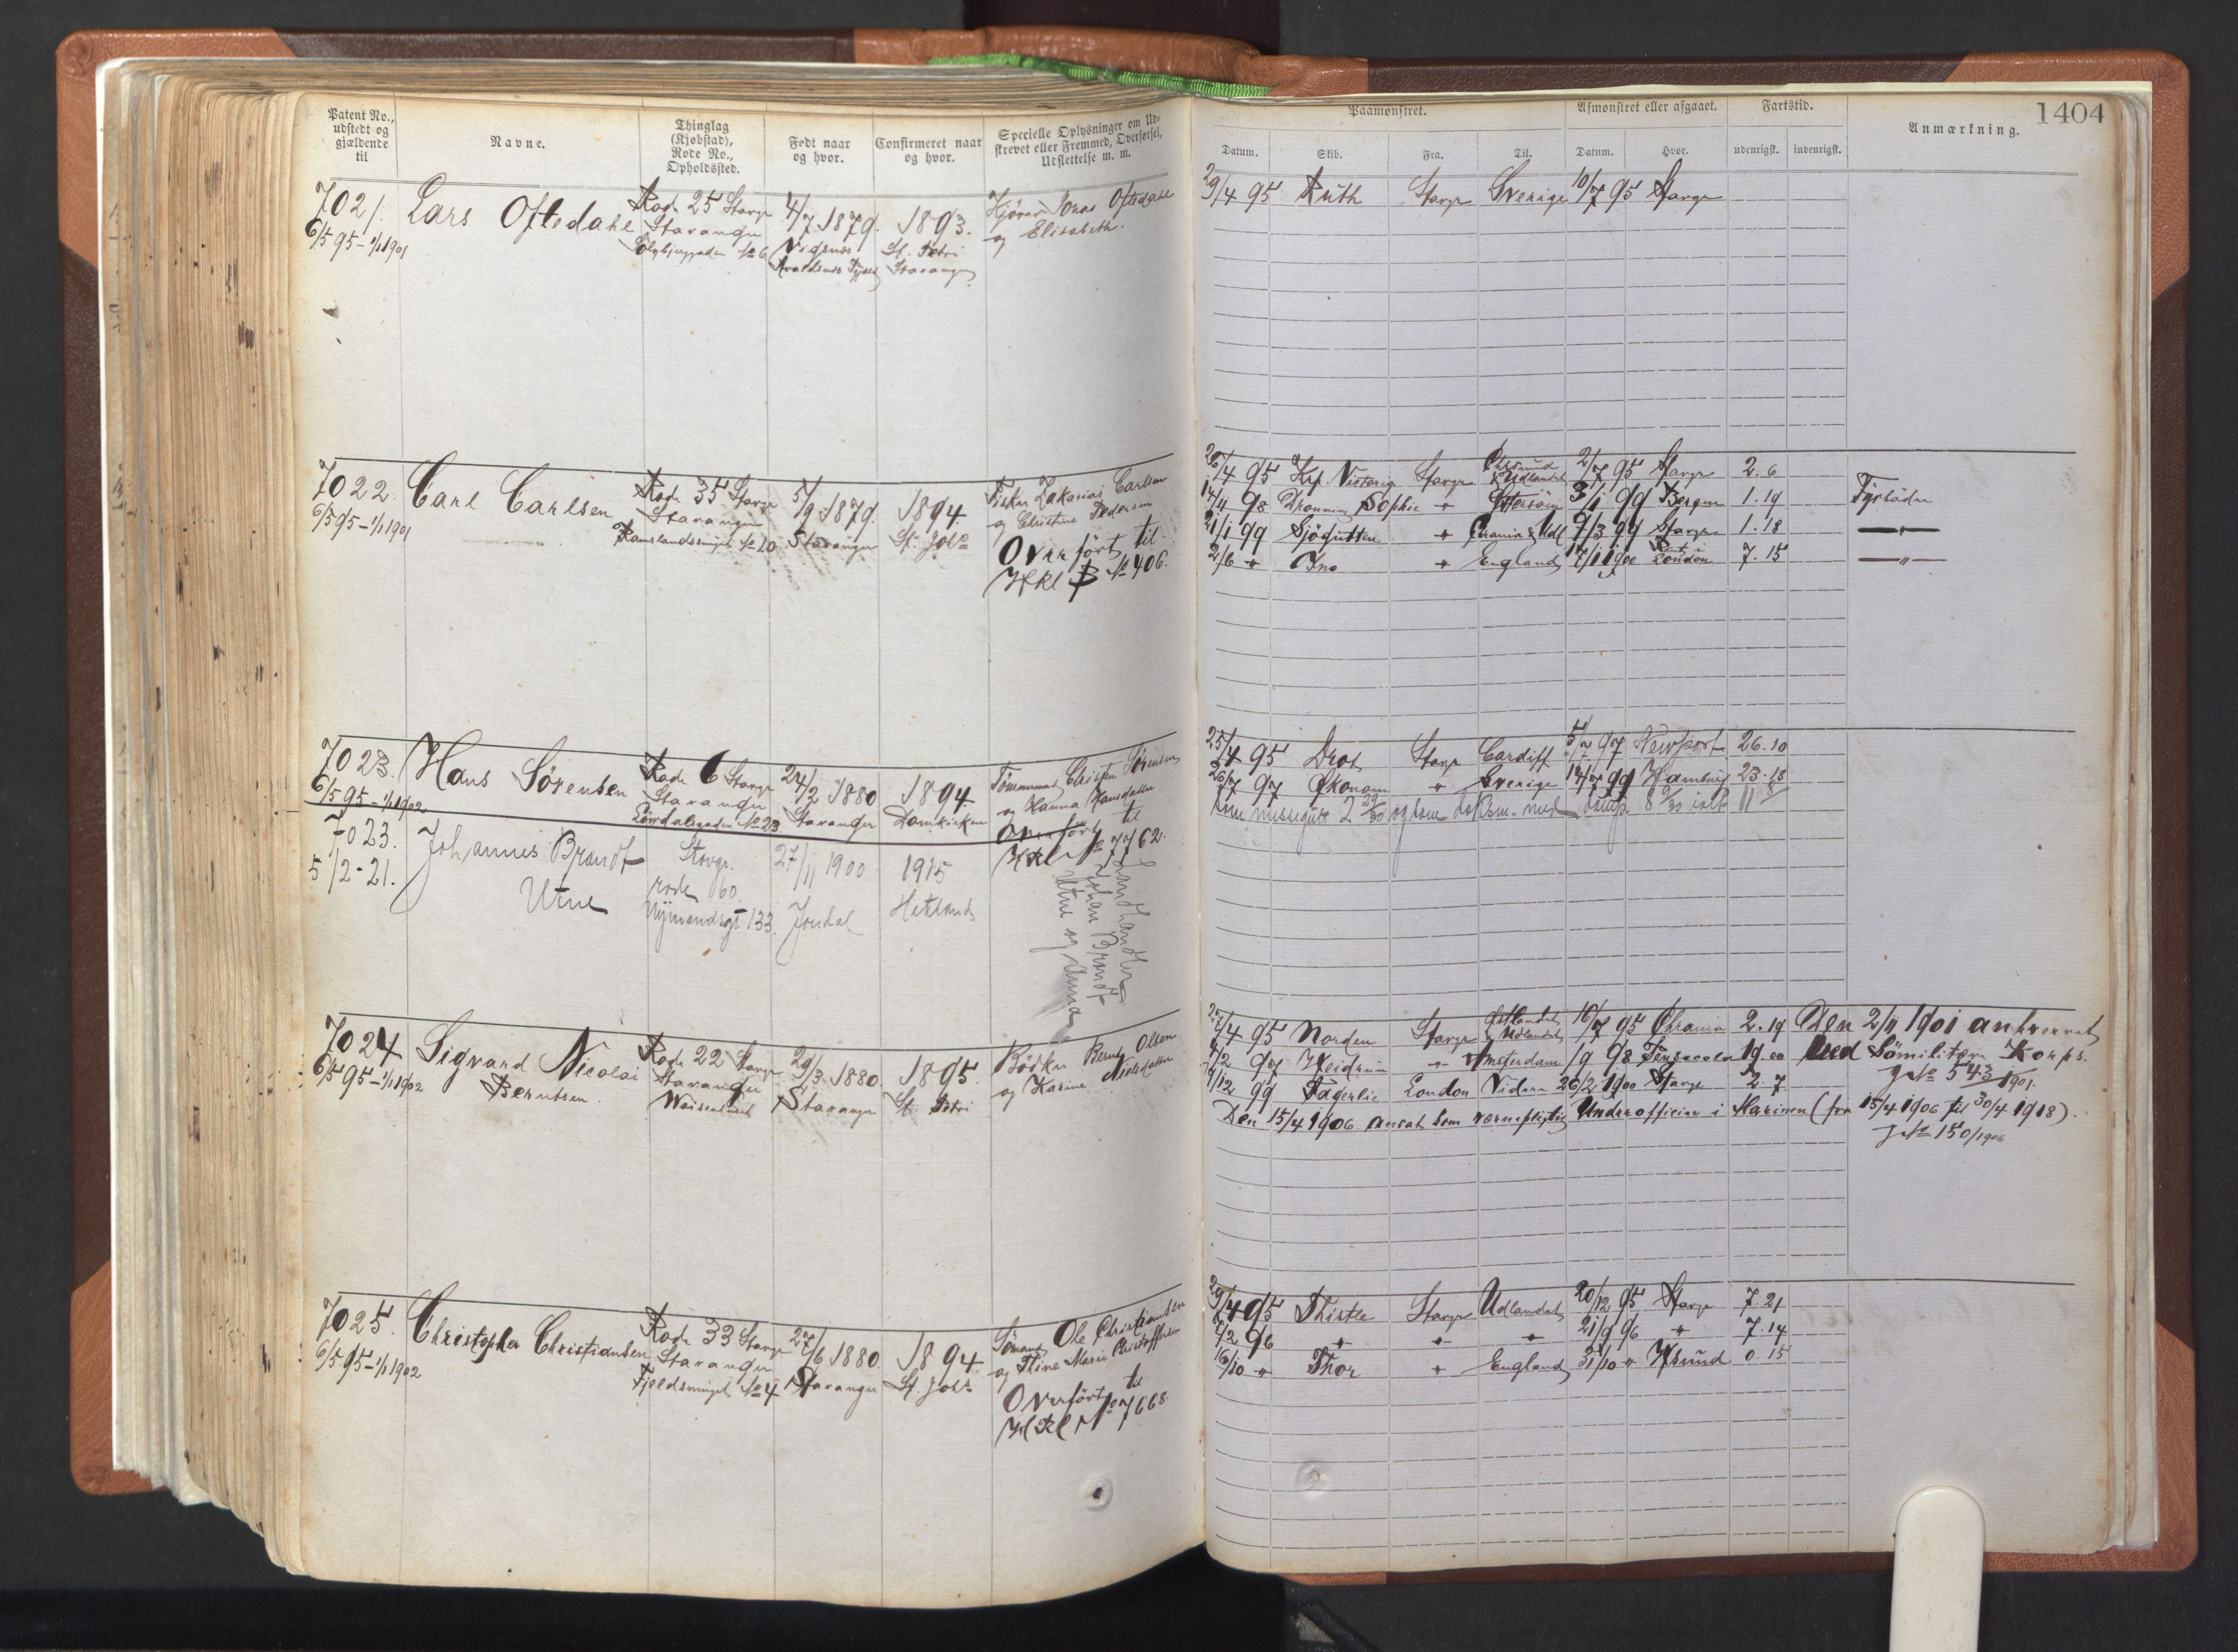 Patent No., udstedt og gjældende til
Navne.
Thinglag (Kjøbstad), Rode No., Opholdssted.
Født naar og hvor.
Confirmeret naar og hvor.
Specielle Oplysninger om Udskrevet eller Fremmed, Overførsel, Udslettelse m. m.
Paamønstret.
Afmønstret eller afgaaet.
Fartstid.
Anmærkning.
1404
Datum. Skib. Fra. Til. Datum. Hvor. udenrigsk. indenrigsk.
7021. Lars Oftedahl Rode 25 Stavgr 4/7 1879. 1893. Jonas Oftedahl
6/5 95 - 1/1 1901 Stavanger St. Petri og Elisabeth.
No 6 Stavanger
29/4 95 Ruth Stavgr Sverige 10/7 95 Stavgr
7022. Carl Carlsen Rode 35 Stavgr 5/9 1879. 1894. Fisker Zakarias Carlsen
6/5 95 - 1/1 1901 Stavanger Stavanger St. Johs og Christine Pedersen
No 10
Overført til
HKl B No 406.
26/4 95 Stavgr Udlandet 2/7 95 Stavgr 2.6
14/4 98 Dronning Sophie " 3/1 99 Bergen 1.19 Fyrbøder
21/1 99 Sjøgutten " Chrania & Udl 9/3 99 Stavgr 1.18 — " —
2/6 " Ino " England 17/1 1900 London 7.15 — " —
7023. Hans Sörensen Rode 6 Stavgr 24/2 1880 1894. Tömmermand Christen Sörensen
6/5 95 - 1/1 1902 Stavanger Stavanger Domkirken og Hanna Hansdatter
No 23
Overført til
HKl No 7762.
25/4 95 Drot Stavgr Cardiff 5/7 97 Newport 26.10
26/7 97 Økonom " Sverige 14/7 99 Hamburg 23.18
som messegutt 2 29/30 og som
7023. Johannes Brandt Stavgr. 27/11 1900 1915
5/2-21. Utne rode 60. Jondal Hetland
Nymandsgt 133.
Landhandler
Johan Brandt
Utne og Anna
7024 Sigvard Nicolai Rode 22 Stavgr 29/3 1880. 1895. Bödker Bernt Olsen
6/5 95 - 1/1 1902 Berntsen. Stavanger Stavanger St. Petri og Karine Nielsdatter
Waisenhuset
4 95 Norden Stavgr Østlandet & Udlandet 16/7 95 Chrania 2.19 Den 2/11 1901 anhvervet
2 97 Heidrun " Amsterdam 98 Pensacola 19.00 ved Sömilitære Korps.
JNo 543/1901.
12 99 Fagerlie London 26/2 1900 Stavgr 2.7
Den 15/4 1906 ansat som værnepligtig Underofficier i Marinen (fra 15/4 1906 til 30/4 1918).
JNo 150/1906
7025. Christopher Christiansen Rode 33 Stavgr 27/6 1880. 1894. Sömand Ole Christiansen
6/5 95 - 1/1 1902 Stavanger Stavanger St. Johs og Stine Marie Christoffersen
No 4
Overført til
HKl No 7668.
29/4 95 Thistle Stavgr Udlandet 20/12 95 Stavgr 7.21
2 96 " " " 21/9 96 " 7.14
16/10 " Thor " England 31/10 " Hsund 0.15